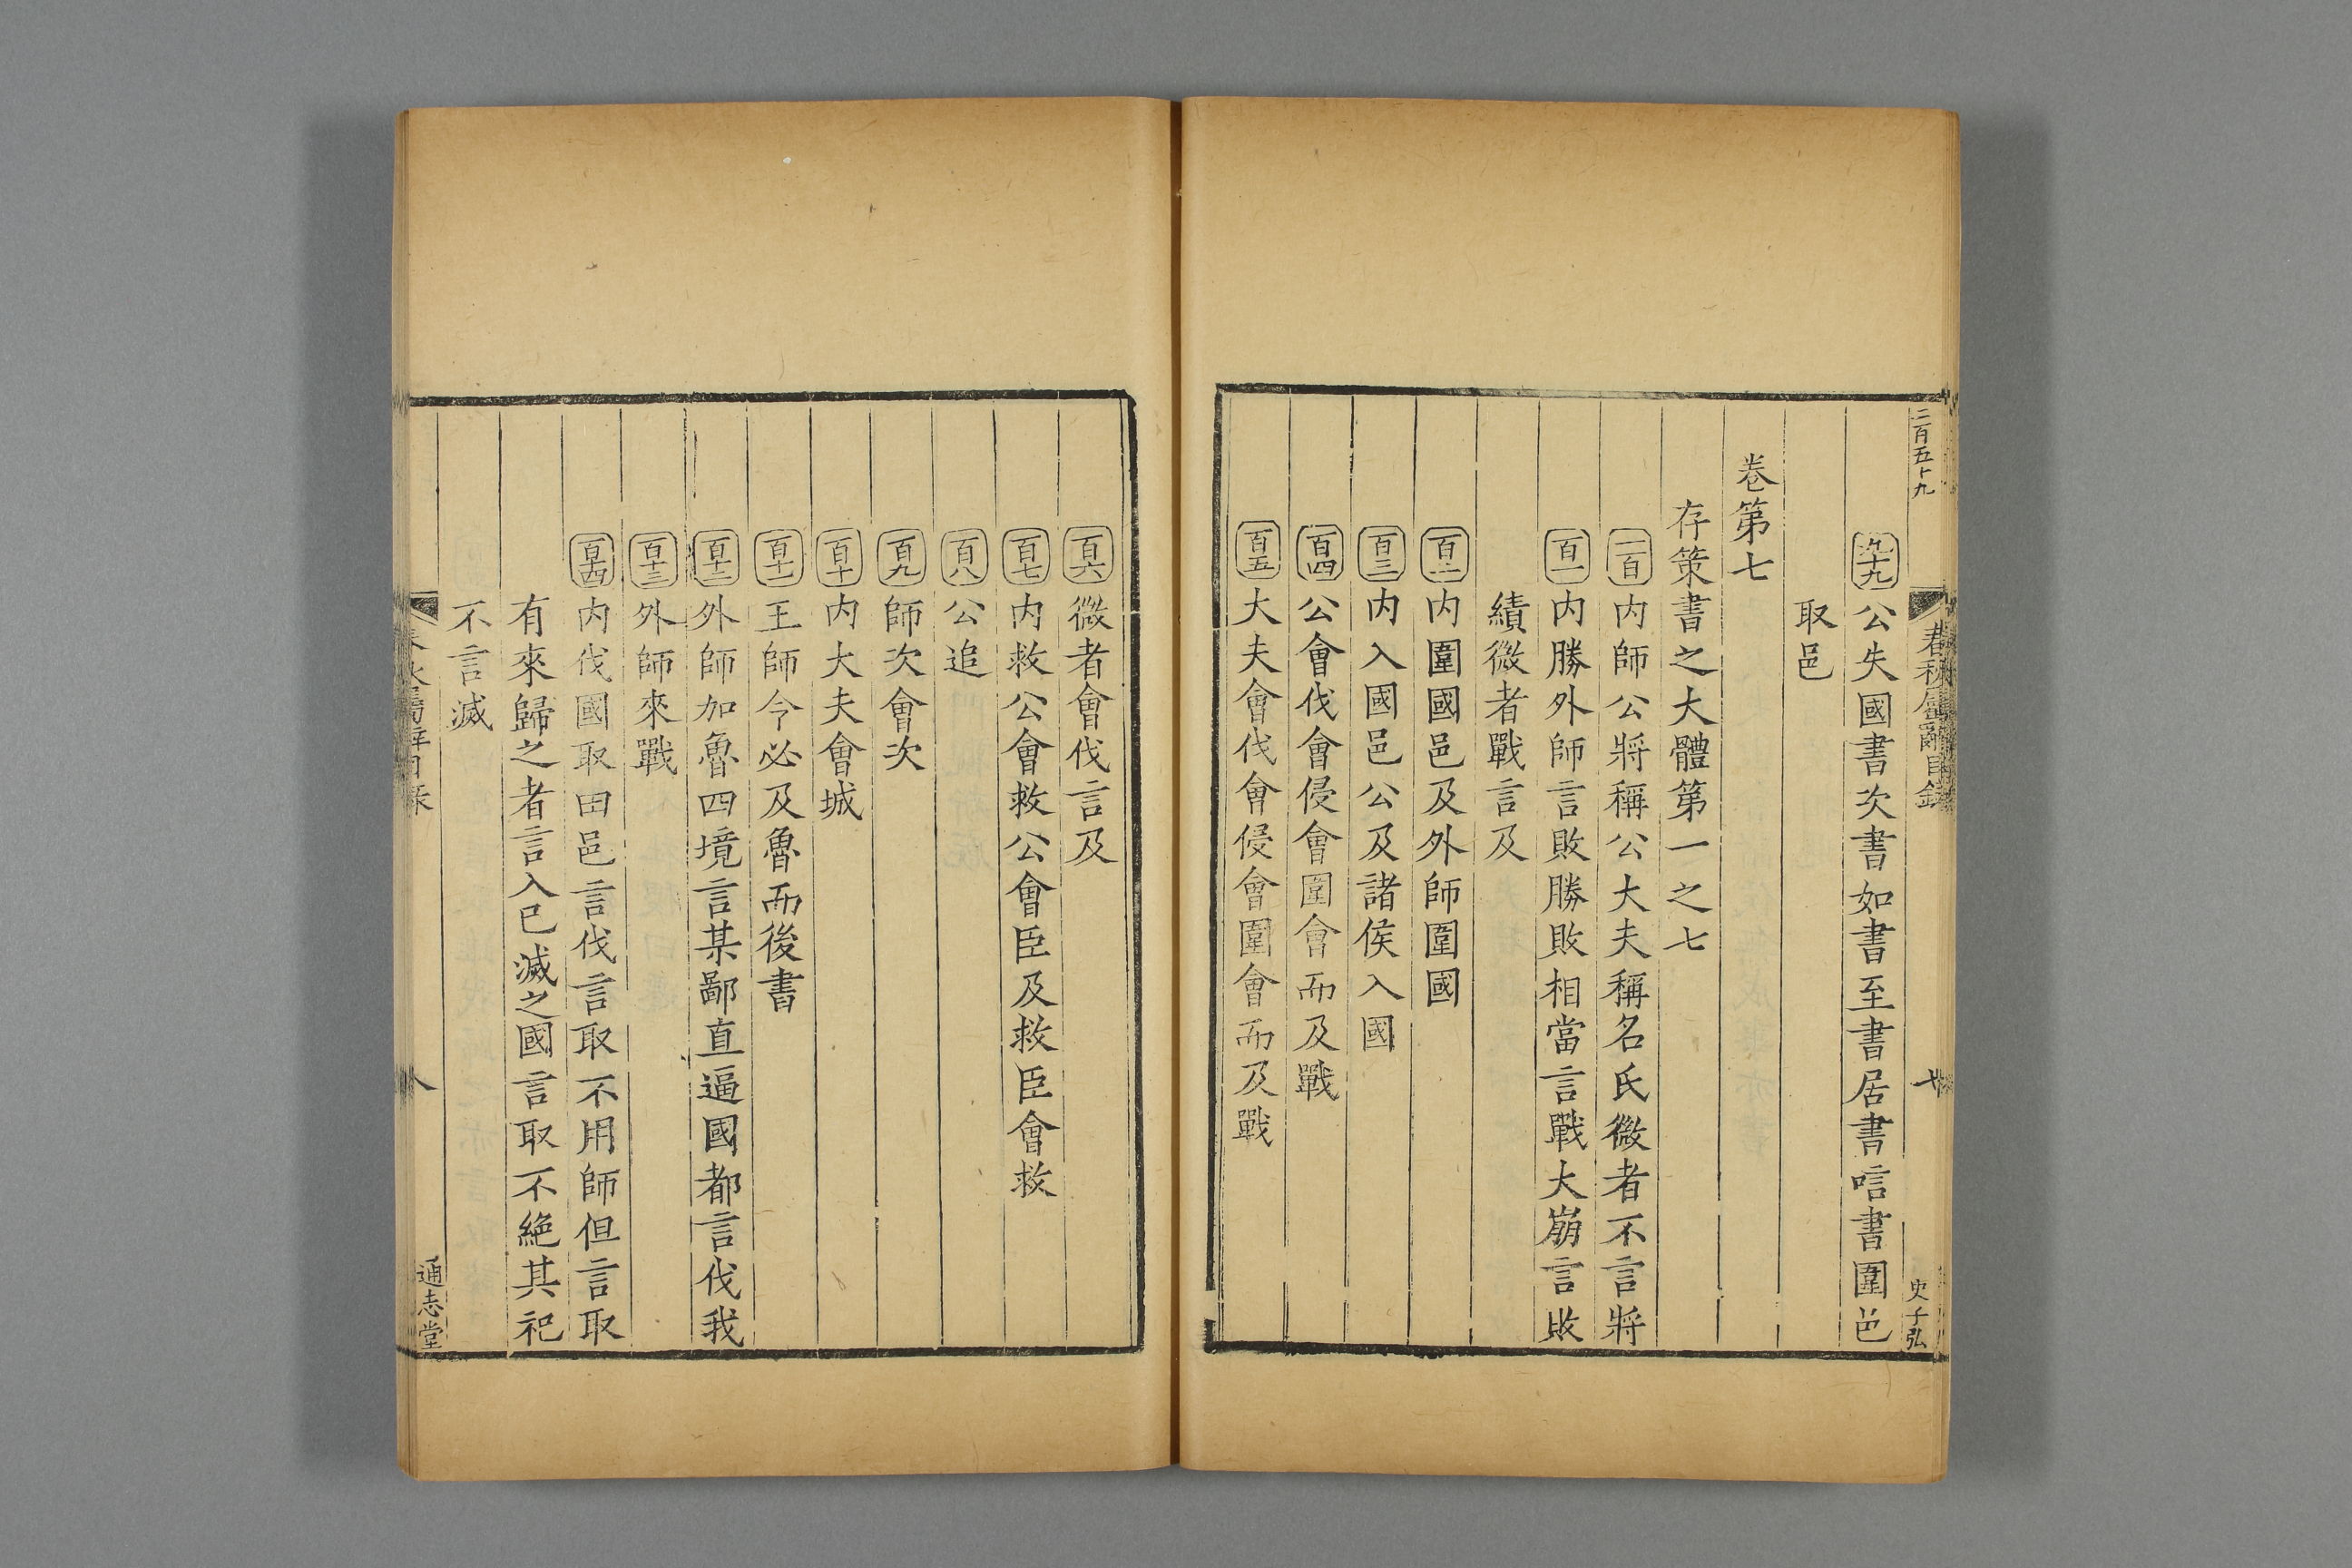 二百五十九
春秋屬辭目錄
七
史子弘
九十九 公失國書次書如書至書居書唁書圍邑
取邑
卷第七
存策書之大體第一之七
一百 内師公將稱公大夫稱名氏微者不言將
百一 内勝外師言敗勝敗相當言戰大崩言敗
績微者戰言及
百二 内圍國邑及外師圍國
百三 内入國邑公及諸侯入國
百四 公會伐會侵會圍會而及戰
百五 大夫會伐會侵會圍會而及戰
百六 微者會伐言及
百七 内救公會救公會臣及救臣會救
百八 公追
百九 師次會次
百十 内大夫會城
百十一 王師今必及魯而後書
百十二 外師加魯四境言某鄙直逼國都言伐我
百十三 外師來戰
百十四 内伐國取田邑言伐言取不用師但言取
有來歸之者言入已滅之國言取不絶其祀
不言滅
春秋屬辭目錄
八
通志堂